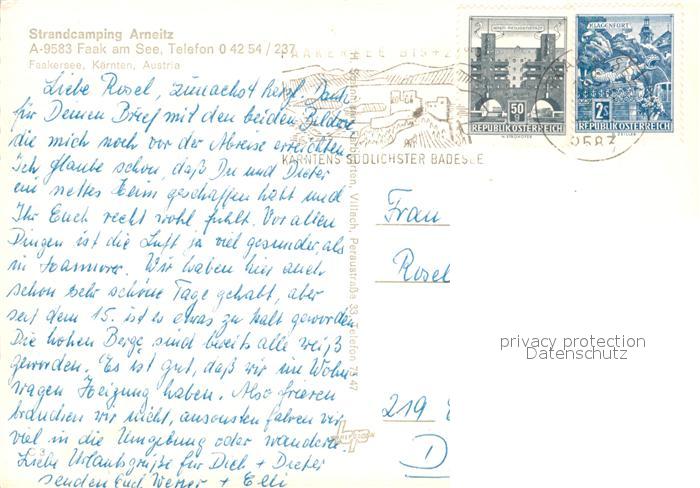 Strandcamping Arneitz
A-9583 Faak am See, Telefon 0 42 54 / 237
Faakersee, Kärnten, Austria
Liebe Rosel, zunächst herzl. Dank
für Deinen Brief mit den beiden Bildern
die mich noch vor der Abreise erreichten
Ich glaube schon, daß Du und Dieter
ein nettes Heim geschaffen habt und
Ihr Euch recht wohl fühlt. Vor allen
Dingen ist die Luft ja viel gesunder, als
in Hannover. Wir haben hier auch
schon sehr schöne Tage gehabt, aber
seit dem 15. ist es etwas zu kalt geworden
Die hohen Berge sind bereits alle weiß
geworden. Es ist gut, daß wir im Wohn
wagen Heizung haben. Also frieren
brauchen wir nicht, ansonsten fahren wir
viel in die Umgebung oder wandern.
Liebe Urlaubsgrüße für Dich + Dieter
senden Euch Werner + Elli
Villach, Peraustraße 33, Telefon 75 47
FAAKERSEE
KÄRNTENS SÜDLICHSTER BADESEE
9583
50 g
REPUBLIK ÖSTERREICH
KLAGENFURT
2 S
REPUBLIK ÖSTERREICH
Frau
Rosel
219
D
privacy protection
Datenschutz